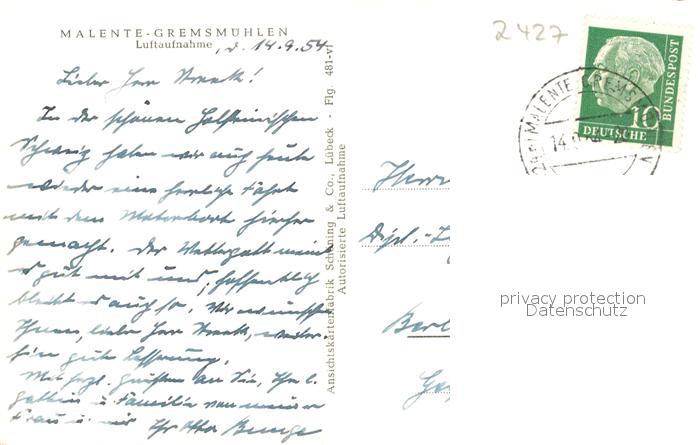 MALENTE-GREMSMÜHLEN
Luftaufnahme, d. 14.9.54
Lieber Herr
In der schönen Holsteinischen
Schweiz haben wir auch heute
wieder eine herrliche Fahrt
mit dem Motorboot hierher
gemacht. Der Wettergott meint
es gut mit uns, hoffentlich
bleibt es auch so. Wir wünschen
Ihnen, lieber Herr weiter-
hin gute Besserung.
Mit herzl. Grüßen an Sie, Ihre l.
Gattin u. Familie von meiner
Frau u. mir Ihr Otto Bunge
Ansichtskartenfabrik Schöning & Co., Lübeck - Flg. 481-vl
Autorisierte Luftaufnahme
2427
10
DEUTSCHE
BUNDESPOST
MALENTE-GREMS
14.9.
Herrn
Dipl.-I
Berl
privacy protection
Datenschutz